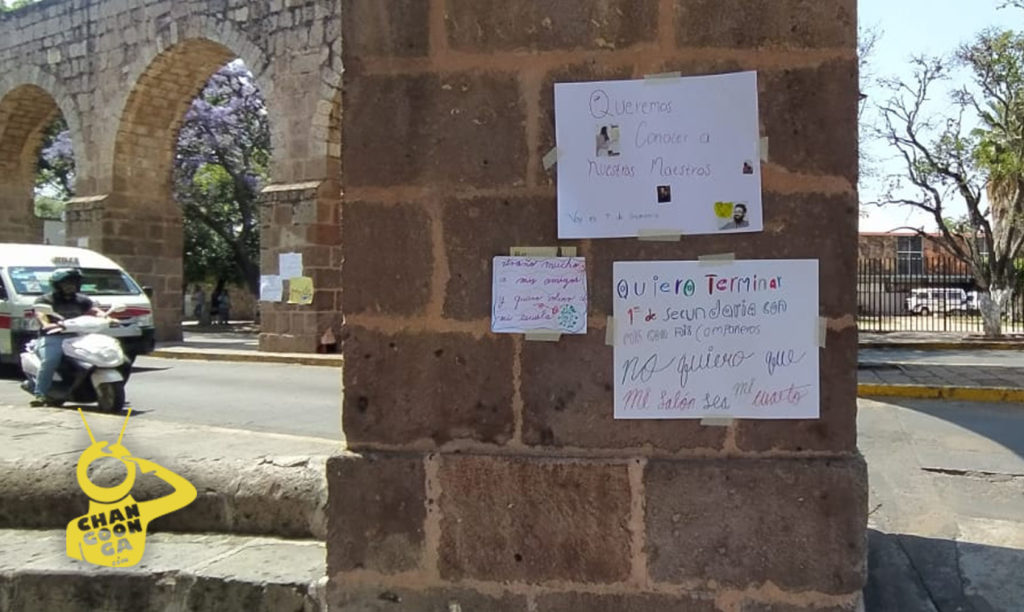 Queremos
Conocer a
Nuestros Maestros.
Voy en 1° de
extraño mucho
a mis amigos
y quiero volver a
mi escuela
Quiero Terminar
1° de secundaria con
mis compañeros
no quiero que
mi salón sea mi cuarto
CHAN
GOON
GA
.com